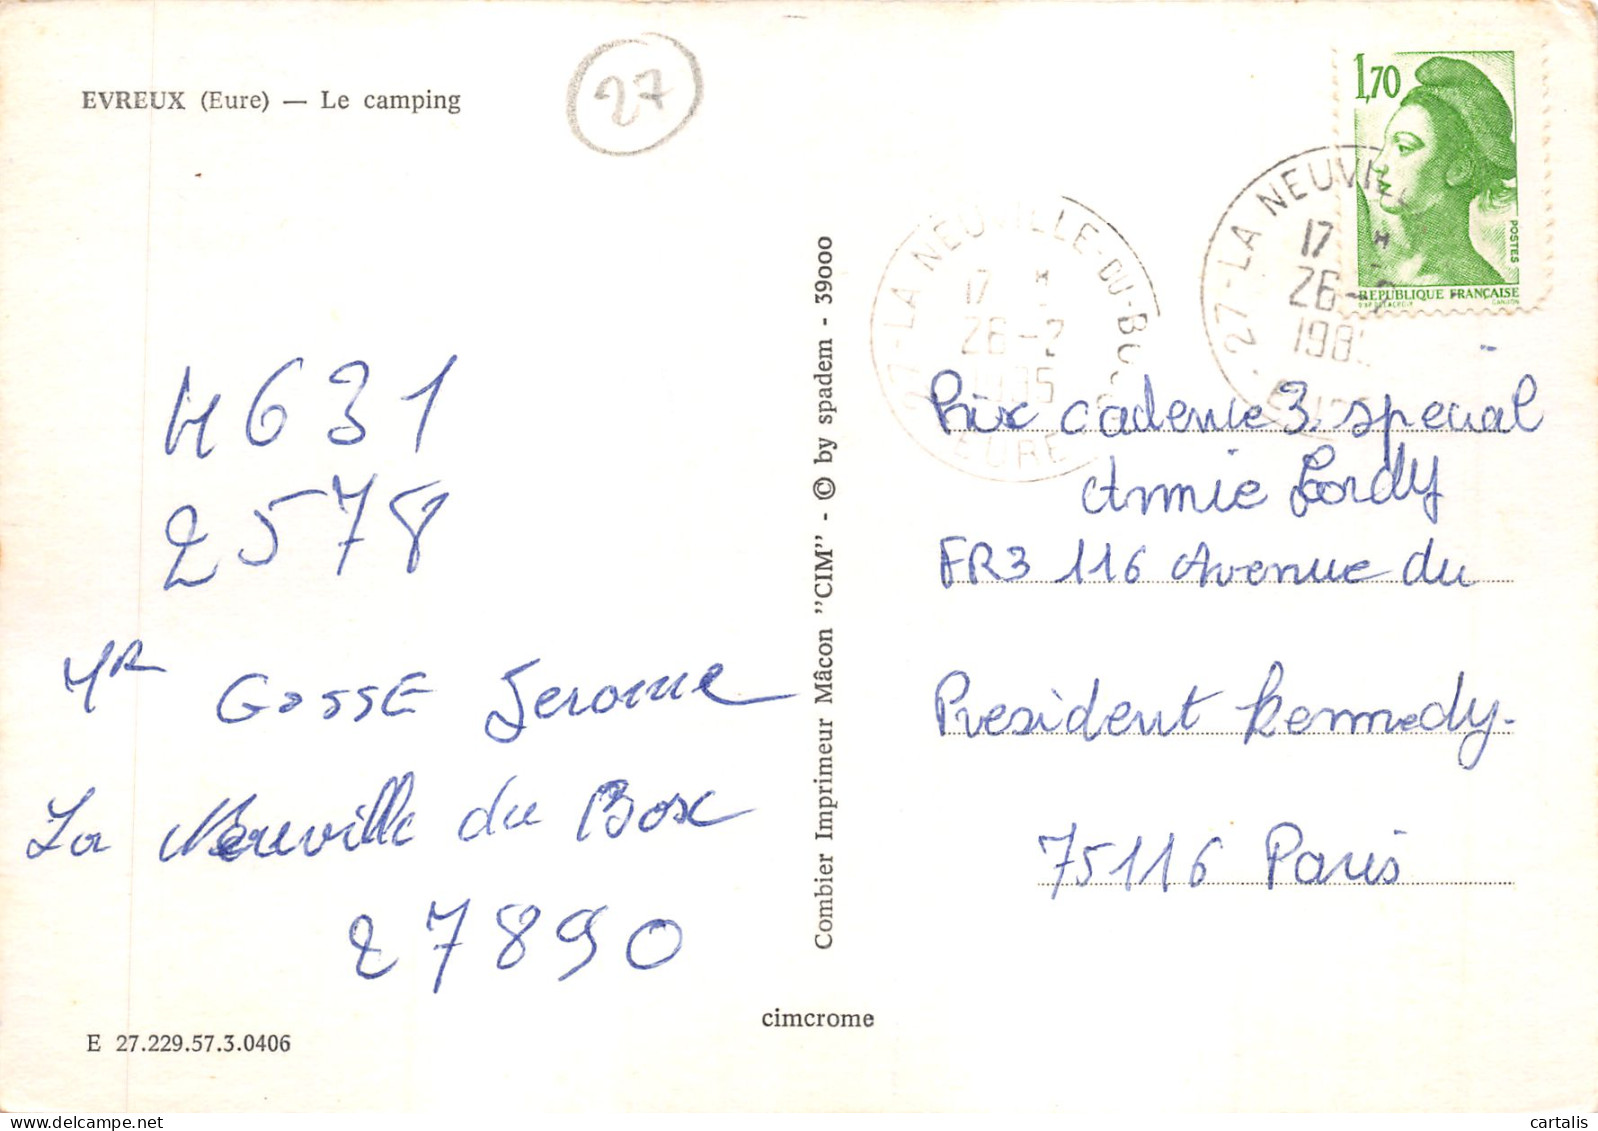 EVREUX (Eure) — Le camping
27
1,70
POSTES
REPUBLIQUE FRANÇAISE
27-LA NEUVILLE-DU-BOSC
17 *
26-2
1985
EURE
27-LA NEUVILL
17 *
26-2
198
EURE
4631
2578
Mr GOSSE Jerome
La Neuville du Bosc
27890
Combier Imprimeur Mâcon "CIM" - © by spadem - 39000
Prix cadence 3. special
FR3 116 Avenue du
President Kennedy-
75116 Paris
cimcrome
E 27.229.57.3.0406
cartalis